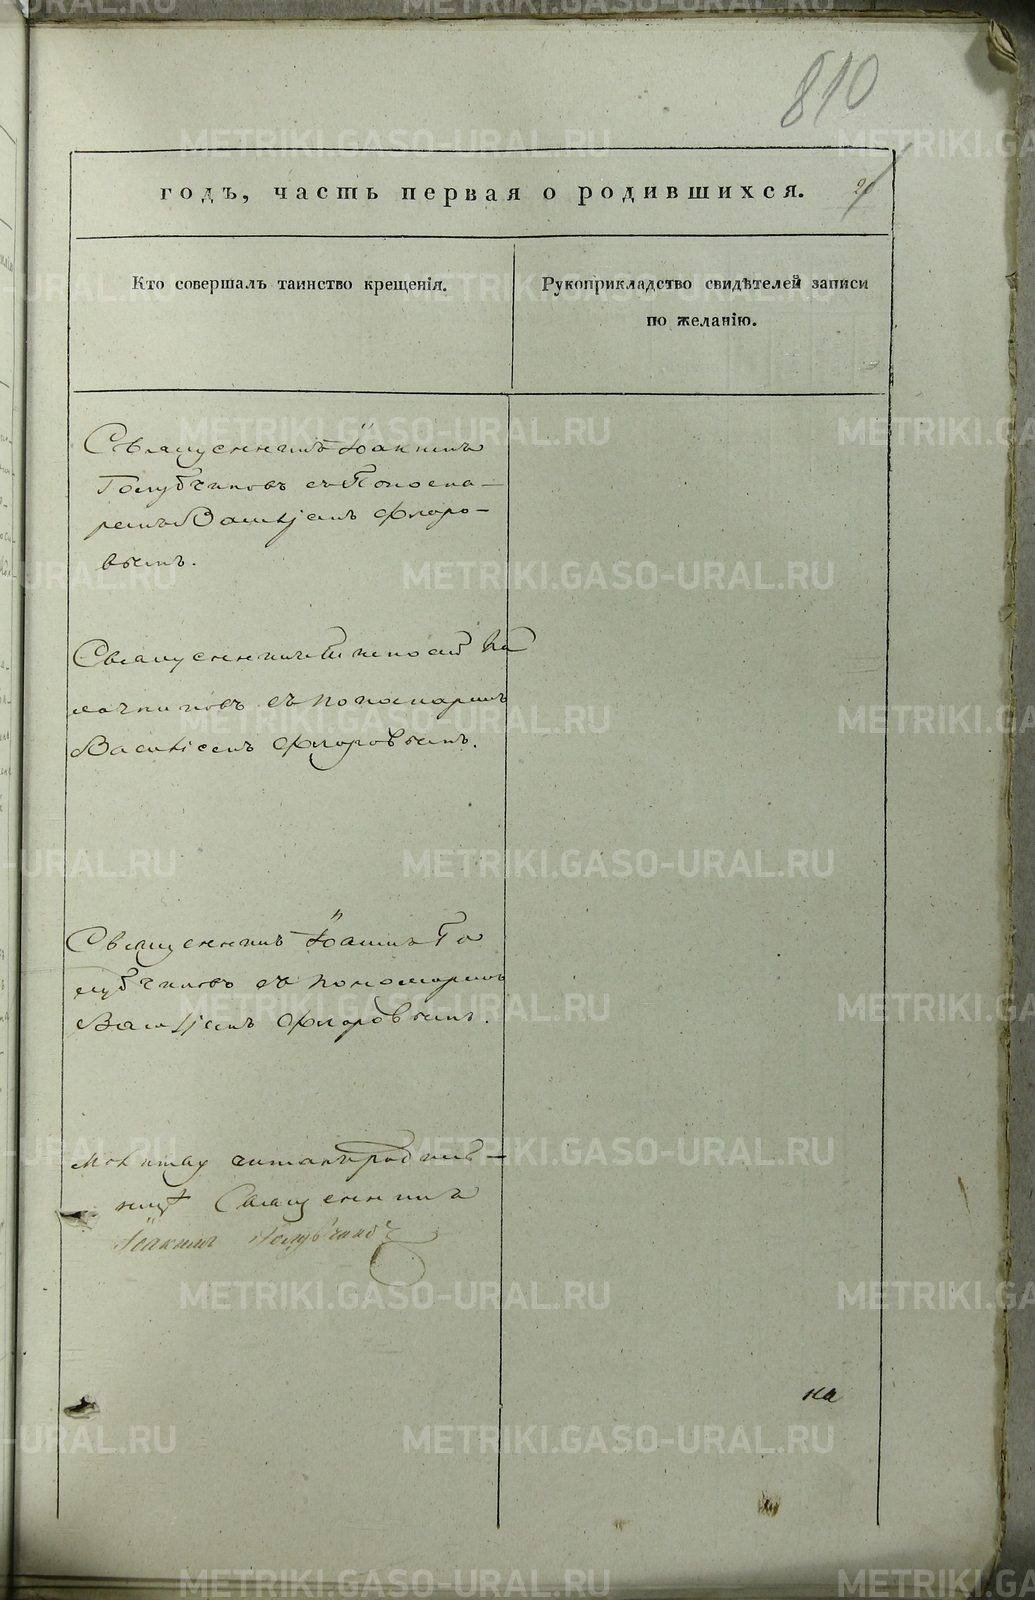 810
годъ, часть первая о родившихся.
Кто совершалъ таинство крещенія.
Рукоприкладство свидѣтелей записи
по желанію.
Священникъ Іоакимъ
Голубчиковъ съ Понома-
ремъ Василіемъ Флоро-
вымъ.
Священникъ
съ пономаремъ
Василіемъ Флоровымъ.
Священникъ Іоакимъ Го
лубчиковъ съ пономаремъ
Василіемъ Флоровымъ.
Молитву читалъ родиль-
ницѣ Священникъ
Іоакимъ Голубчиковъ
на
METRIKI.GASO-URAL.RU